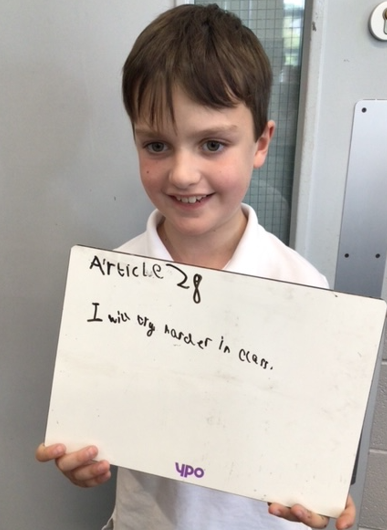 Article 28
I will try harder in class.
ypo